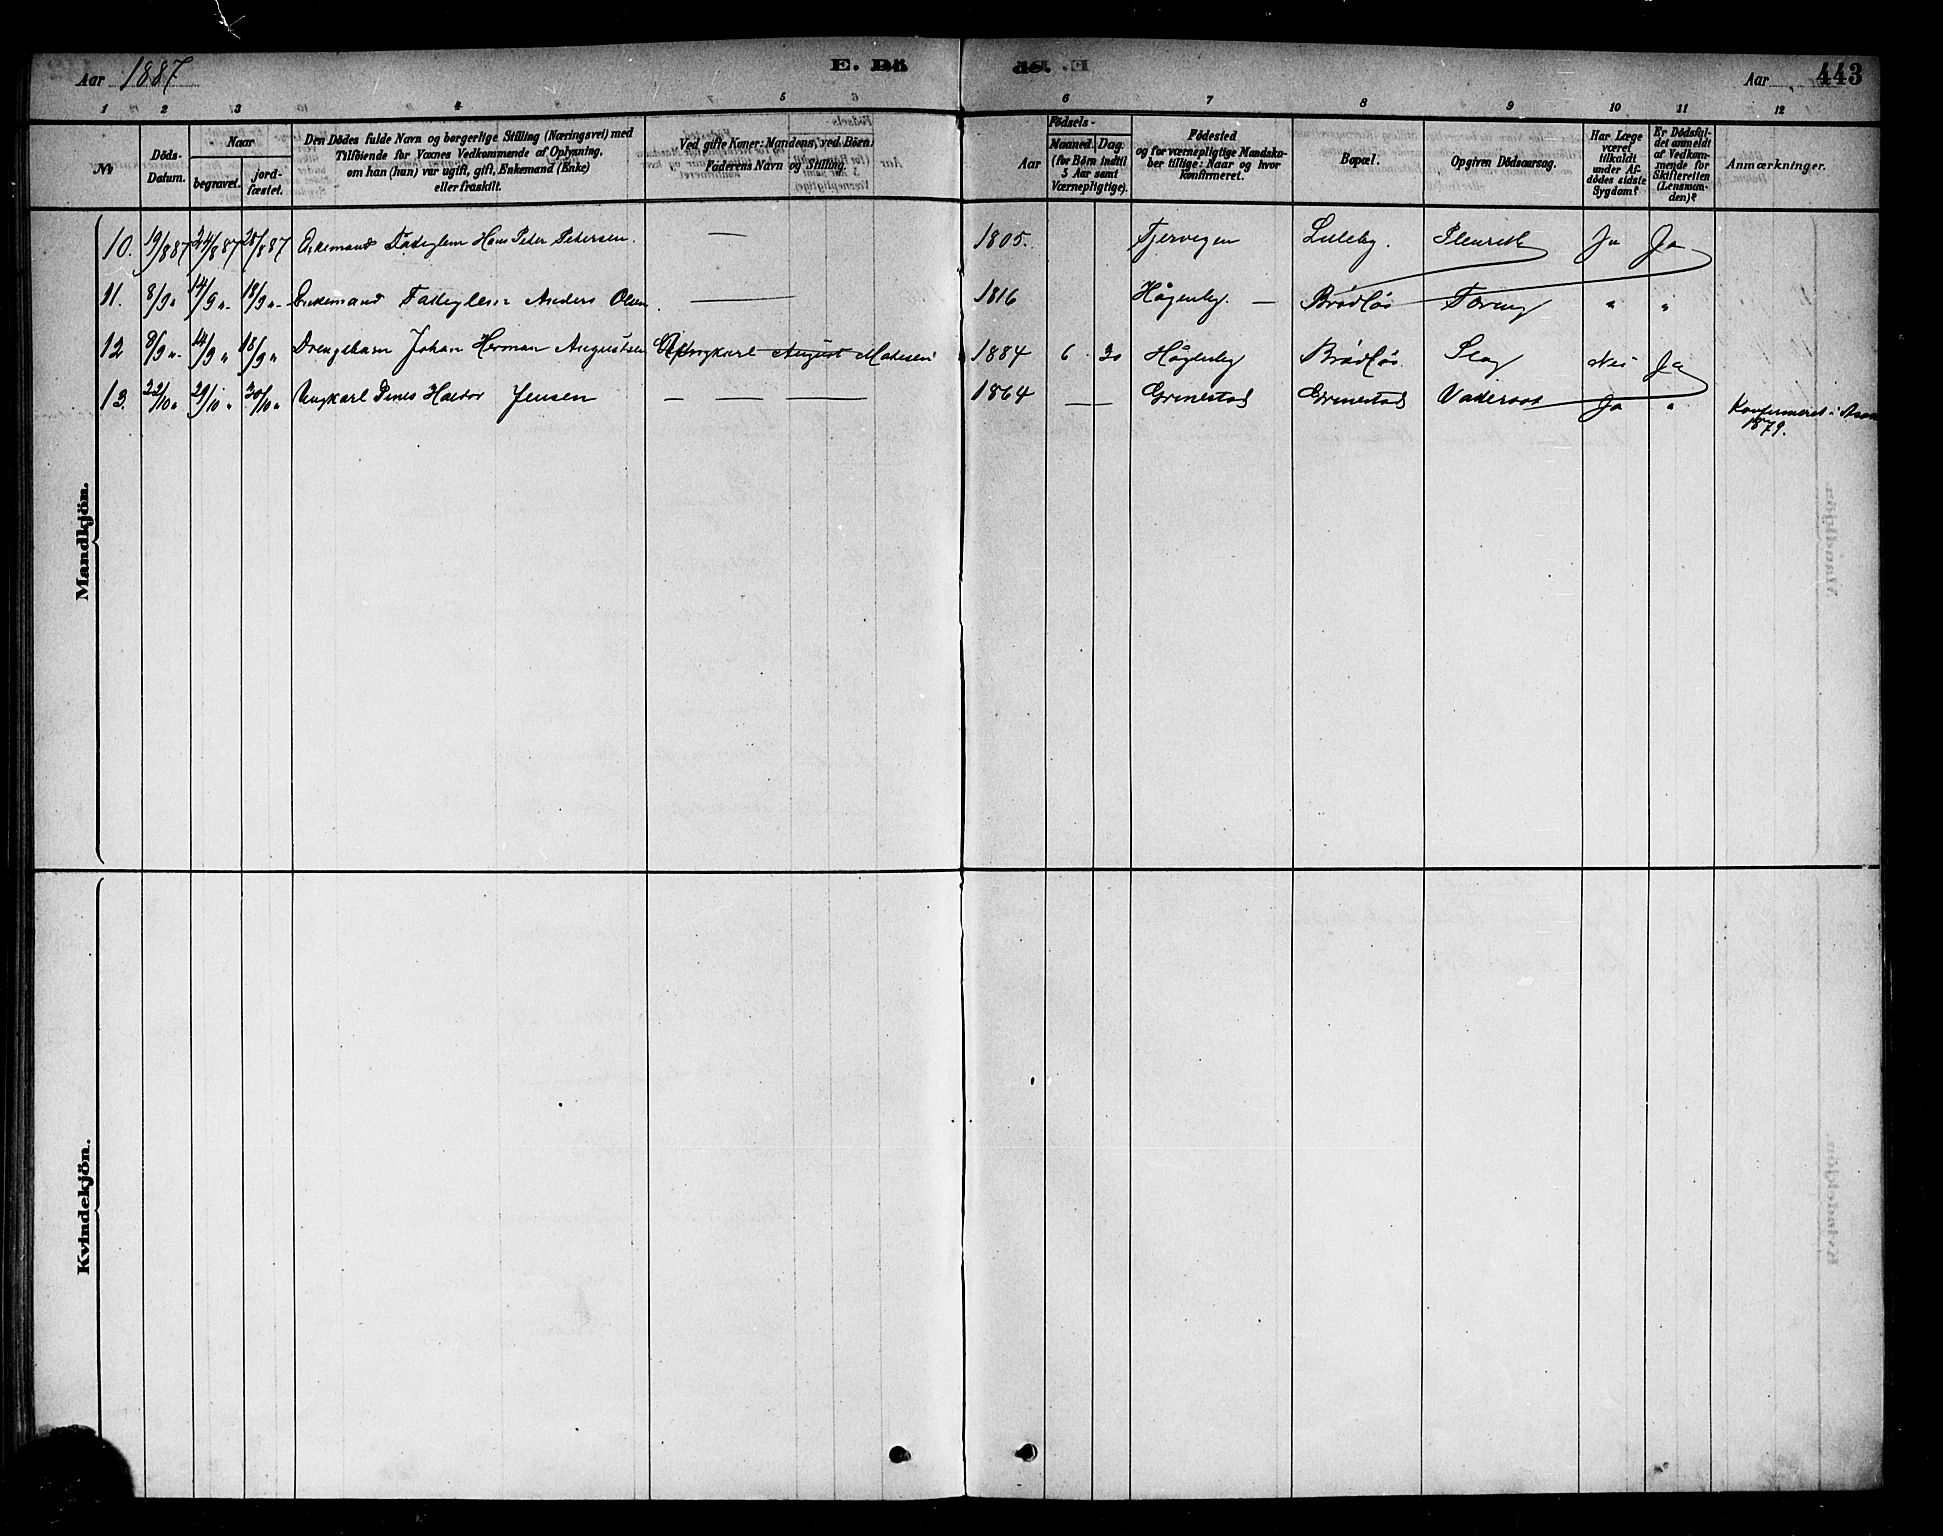 Aar 1887
E. Dö
de.
Aar
443
1 2 3 4 5 6 7 8 9 10 11 12
№
Döds-
Datum.
Naar
begravet.
jord-
fæstet.
Den Dödes fulde Navn og borgerlige Stilling (Næringsvei) med
Tilföiende for Voxnes Vedkommende af Oplysning,
om han (hun) var ugift, gift, Enkemand (Enke)
eller fraskilt.
Ved gifte Koner: Mandens, ved Börn:
Faderens Navn og Stilling.
Födsels-
Aar
Maaned. Dag.
(for Börn indtil
5 Aar samt
Værnepligtige).
Födested
og for værnepligtige Mandska-
ber tillige: Naar og hvor
konfirmeret.
Bopæl.
Opgiven Dödsaarsag.
Har Læge
været
tilkaldt
under Af-
dödes sidste
Sygdom?
Er Dödsfal-
det anmeldt
af Vedkom-
mende for
Skifteretten
(Lensman-
den)?
Anmærkninger.
Mandkjön.
10. 19/8 87 24/8 87 28/8 87 Enkemand Hans Peder Pedersen. — 1805. Lilleby. Ja Ja
11. 8/9 " 14/9 " 18/9 " Enkemand Anders Olsen — 1816 Hågenby. — Brødløs " "
12 8/9 " 14/9 " 18/9 " Drengebarn Johan Herman Augustsen Ungkarl August Madesen 1884 6 30 Hågenby Brødløs. Slag Nei Ja
13. 22/10 " 29/10 " 30/10 " Ungkarl Jensen — — — 1864 — Grinestad Grinestad Ja " Konfirmeret i
1879.
Kvindekjön.